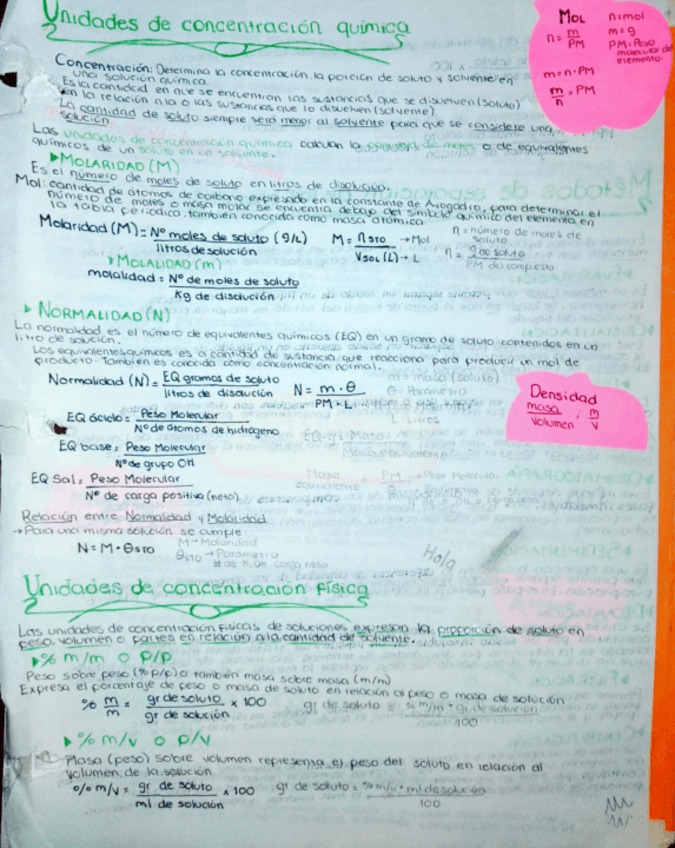 Unidades de concentración química
Mol
n=mol
n= m/PM
m=g
PM=Peso molecular del elemento
m=n·PM
m/n = PM
Concentración: Determina la concentración, la porción de soluto y solvente en
una solución química.
Es la cantidad en que se encuentran las sustancias que se disuelven (soluto)
en la relación a la o las sustancias que lo disuelven (solvente)
La cantidad de soluto siempre será menor al solvente para que se considere una
solución.
Las unidades de concentración química calculan la cantidad de moles o de equivalentes
químicos de un soluto en un solvente.
▸MOLARIDAD (M)
Es el número de moles de soluto en litros de disolución.
Mol: cantidad de átomos de carbono expresado en la constante de Avogadro, para determinar el
número de moles o masa molar se encuentra debajo del símbolo químico del elemento en
la tabla periodica, también conocida como masa atómica.
Molaridad (M) = Nº moles de soluto (g/L) / litros de solución
M = n sto → Mol / Vsol (L) → L
n = número de moles de soluto
n = g de soluto / PM del compuesto
▸MOLALIDAD (m)
molalidad = Nº de moles de soluto / Kg de disolución
▸NORMALIDAD (N)
La normalidad es el número de equivalentes químicos (EQ) en un gramo de soluto contenidos en un
litro de solución.
Los equivalentes químicos es a cantidad de sustancia que reacciona para producir un mol de
producto. También es conocida como concentración normal.
Normalidad (N) = EQ gramos de soluto / litros de disolución
N = m · θ / PM · L
m = masa (soluto)
θ = Parámetro
L = Litros
Densidad
masa / Volumen = m / V
EQ ácido = Peso Molecular / Nº de átomos de hidrógeno
EQ base = Peso Molecular / Nº de grupo OH
EQ Sal = Peso Molecular / Nº de carga positiva (neto)
Masa / equivalente = PM
Peso Molecular
Relación entre Normalidad y Molaridad
→Para una misma solución se cumple:
N = M · θsto
M→Molaridad
θsto → Parámetro
# de H, OH, carga neta
Hola
Unidades de concentración física
Las unidades de concentración físicas de soluciones expresan la proporción de soluto en
peso, volumen o partes en relación a la cantidad de solvente.
▸% m/m o P/P
Peso sobre peso (% p/p) o también masa sobre masa (m/m)
Expresa el porcentaje de peso o masa de soluto en relación al peso o masa de solución
% m/m = gr de soluto / gr de solución x 100
gr de soluto = % m/m · gr de solución / 100
▸% m/v o p/v
Masa (peso) sobre volumen representa el peso del soluto en relación al
volumen de la solución
% m/v = gr de soluto / ml de solución x 100
gr de soluto = % m/v · ml de solución / 100